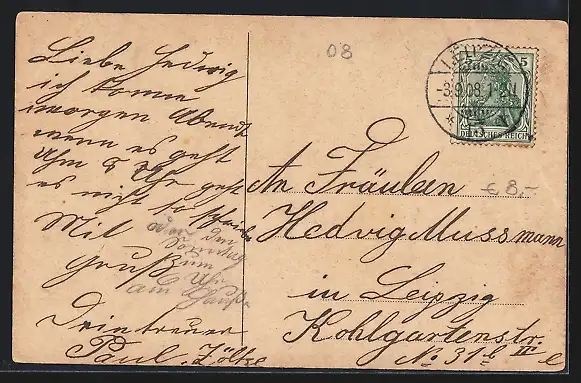 Liebe Hedwig
ich komme
morgen Abend
wenn es geht
Uhm 8 Uhr geht
es nicht so
Mit
Gruß
Dein treuer
Paul
oder
Sonntag
um
Uhr
am
08
LEIPZIG
-3.9.08.
5
DEUTSCHES REICH
€ 8,-
An Fräulein
Hedwig Mussmann
in Leipzig
Kohlgartenstr.
No 31b IV